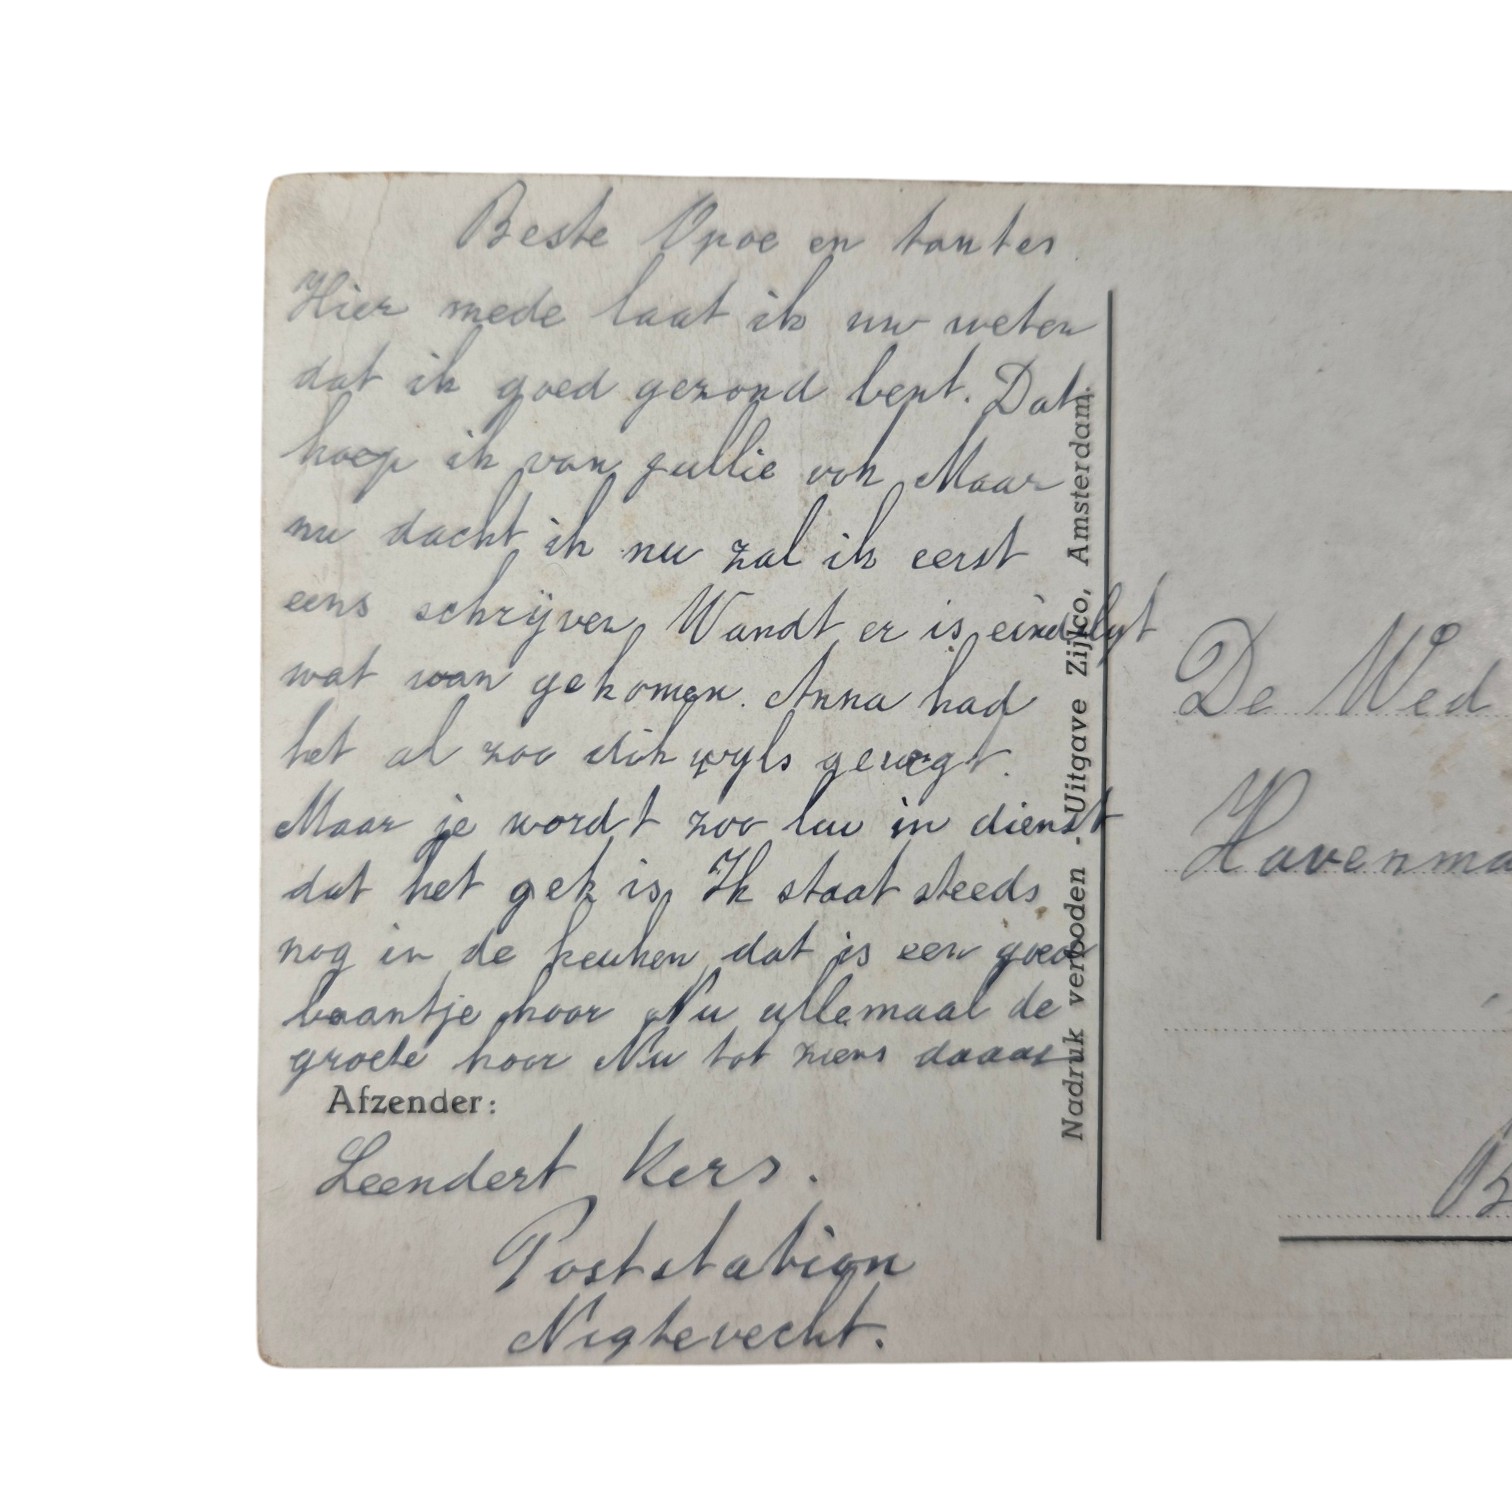 Beste Opoe en tantes
Hier mede laat ik uw weten
dat ik goed gezond bent. Dat
hoop ik van jullie ook Maar
nu dacht ik nu zal ik eerst
eens schrijven Wandt er is eindelyt
wat van gekomen. Anna had
het al zoo dik wyls gevregt.
Maar je wordt zoo lui in dienst
dat het gek is, Ik staat steeds
nog in de keuken dat is een goed
baantje hoor Nu allemaal de
groete hoor Nu tot ziens daaag
Afzender:
Leendert Kers.
Poststation
Nigtevecht.
Nadruk verboden - Uitgave Zijlco, Amsterdam.
De Wed
Havenma